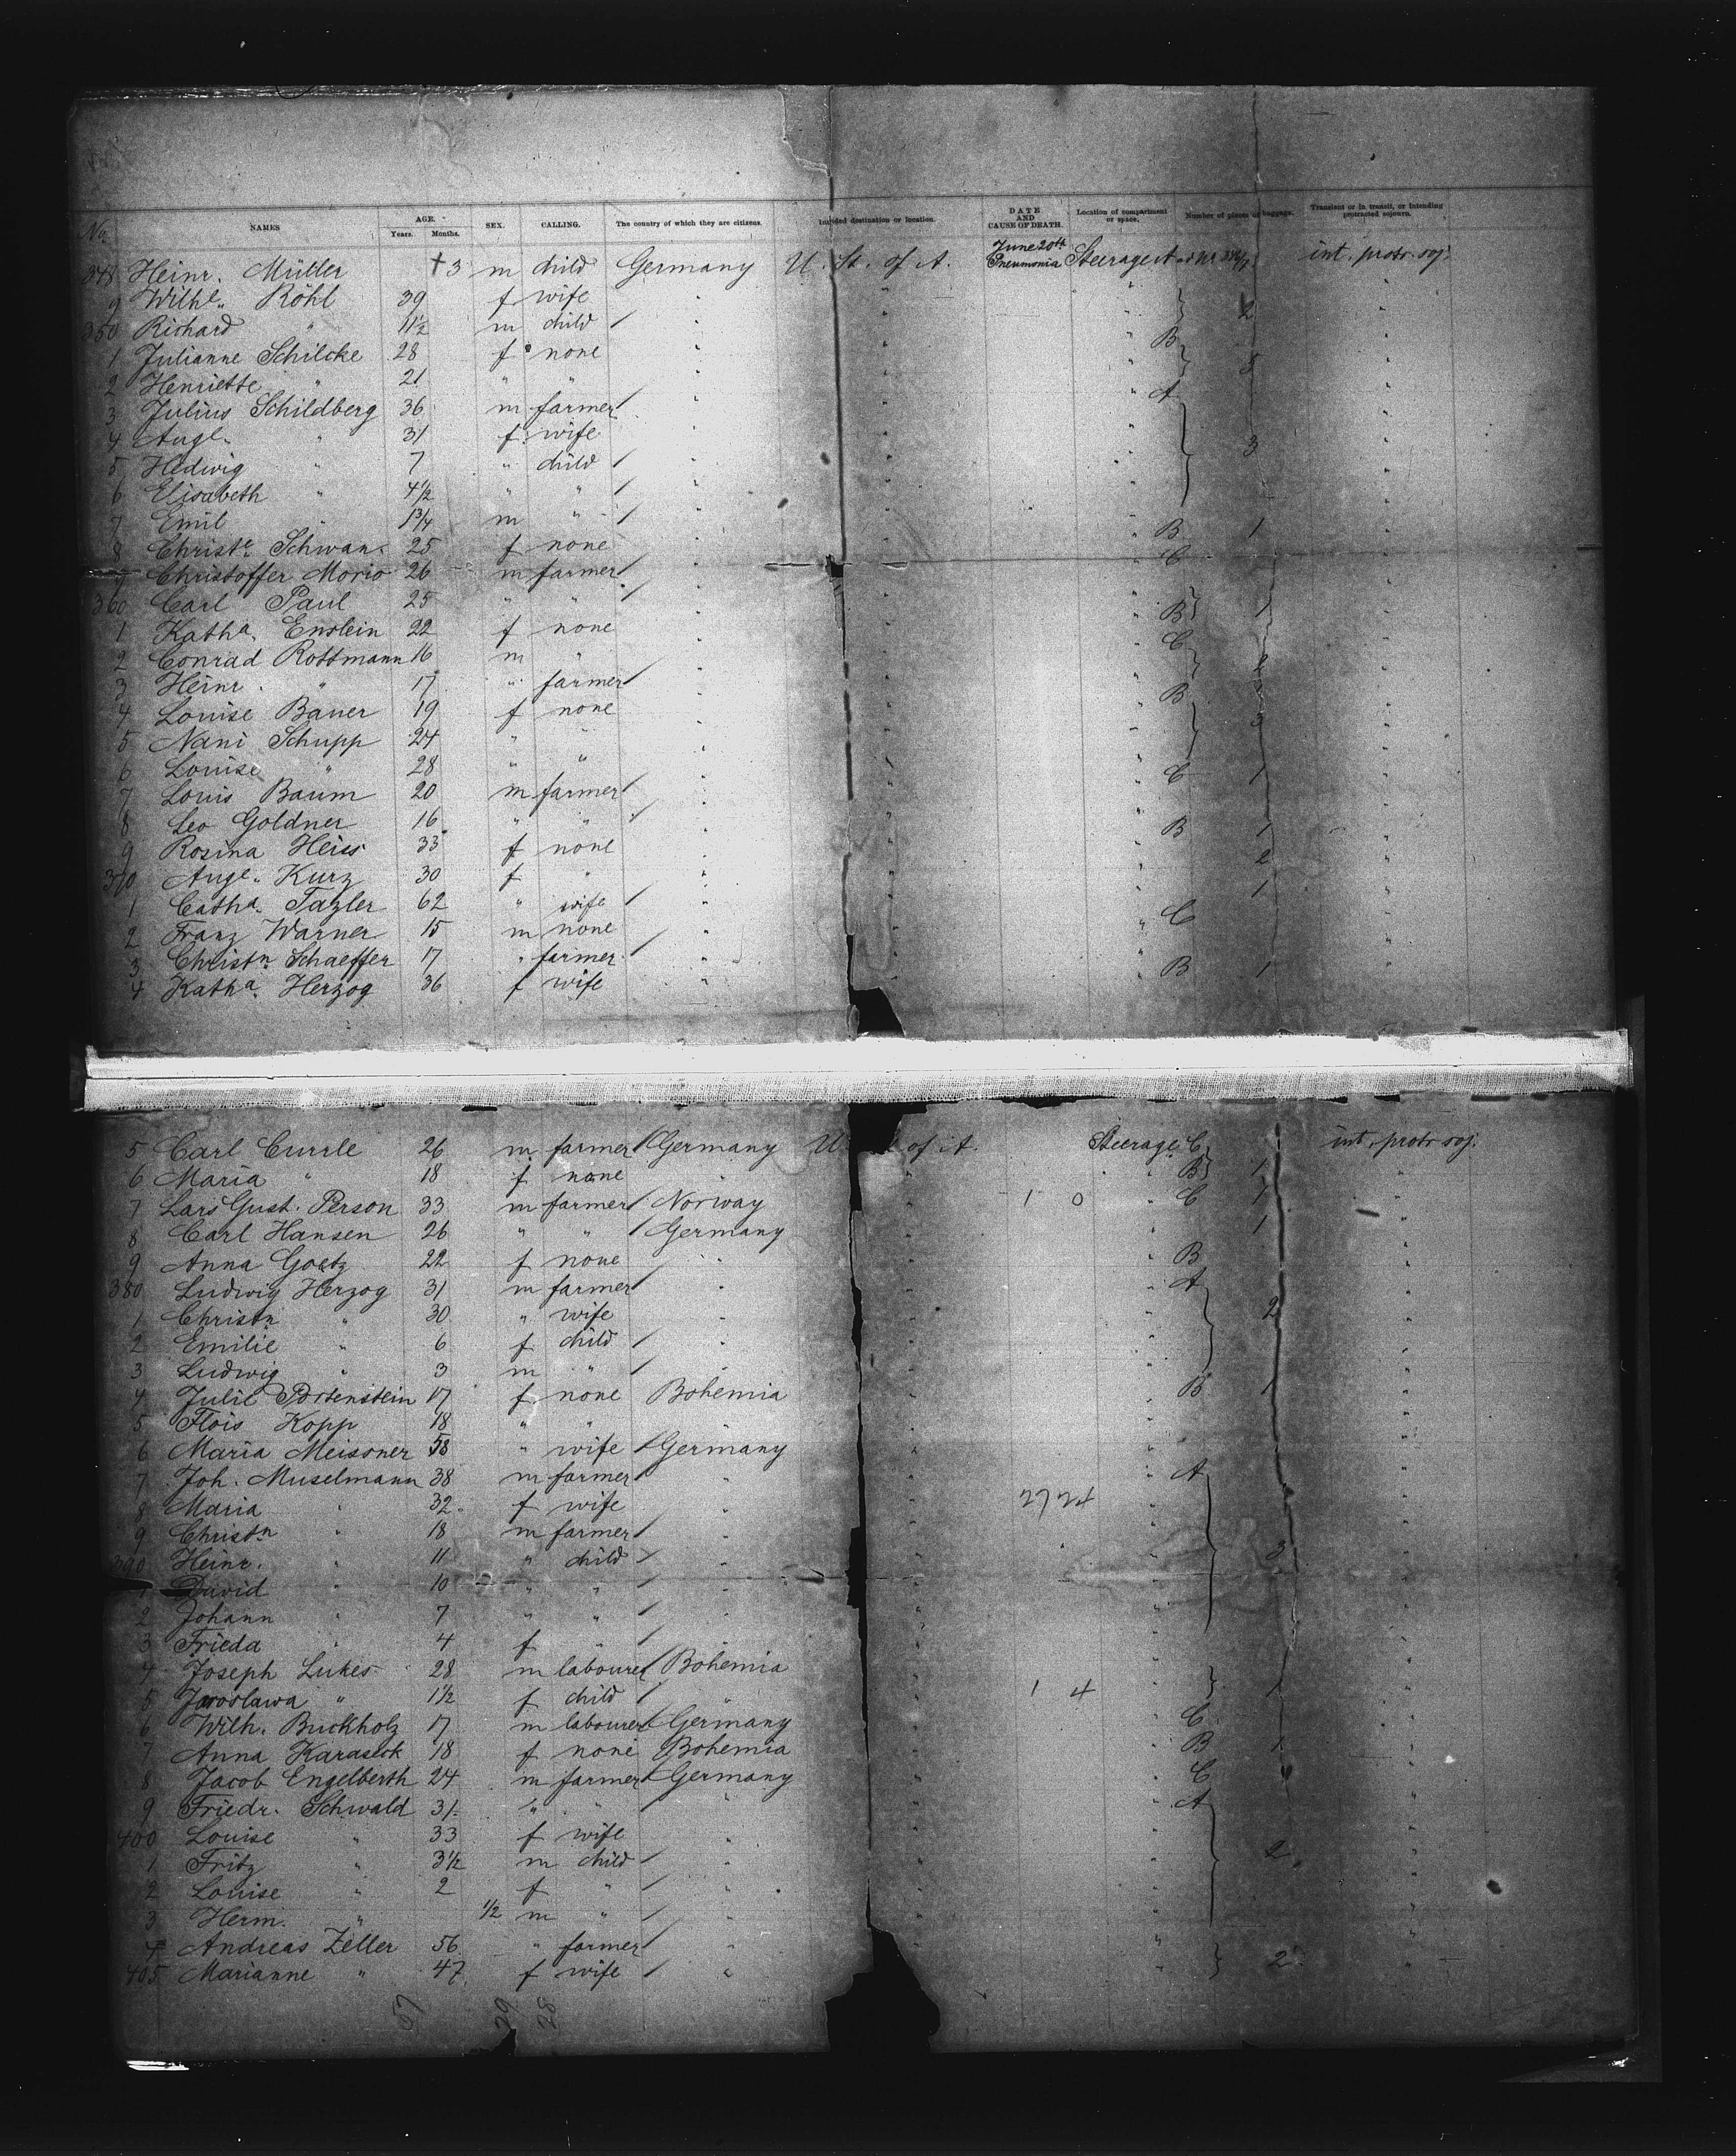 No. NAMES AGE. Years. Months. SEX. CALLING. The country of which they are citizens. Intended destination or location. DATE AND CAUSE OF DEATH. Location of compartment or space. Number of pieces of baggage. Transient or in transit, or intending protracted sojourn.
348 Heinr. Müller †3 m child Germany U. St. of A. June 20th Pneumonia Steerage A int. protr. soj.
9 Wilhe. Röhl 39 f wife " " " 2 "
350 Richard " 11½ m child / " " " "
1 Julianne Schilcke 28 f none " " " B 3 "
2 Henriette " 21 " " " " " "
3 Julius Schildberg 36 m farmer / " " " A "
4 Auge. " 31 f wife " " " 3 "
5 Hedwig " 7 " child / " " " "
6 Elisabeth " 4½ " " / " " " "
7 Emil " 1¾ m " / " " " "
8 Christe. Schwan. 25 f none " " " B 1 "
9 Christoffer Morio 26 m farmer / " " " C "
360 Carl Paul 25 " " / " " " "
1 Katha. Enslein 22 f none " " " B 1 "
2 Conrad Rottmann 16 m " " " " C "
3 Heinr. " 17 " farmer / " " " 2 "
4 Louise Bauer 19 f none " " " B "
5 Nani Schupp 24 " " " " " 3 "
6 Louise " 28 " " " " " "
7 Louis Baum 20 m farmer / " " " C 1 "
8 Leo Goldner 16 " " / " " " "
9 Rosina Heiss 33 f none " " " B 1 "
370 Auge. Kurz 30 f " " " " 2 "
1 Catha. Tazler 62 " wife / " " " 1 "
2 Franz Warner 15 m none " " " C "
3 Christn. Schaeffer 17 " farmer / " " " "
4 Katha. Herzog 36 f wife " " " B 1 "
5 Carl Currle 26 m farmer / Germany U of A. Steerage C int. protr. soj.
6 Maria " 18 f none " " " B 1 "
7 Lars Gust. Person 33 m farmer / Norway " 1 0 " C 1 "
8 Carl Hansen 26 " " / Germany " " 1 "
9 Anna Goetz 22 f none " " " B "
380 Ludwig Herzog 31 m farmer / " " " A "
1 Christn " 30 " wife " " " 2 "
2 Emilie " 6 f child / " " " "
3 Ludwig " 3 m " / " " " "
4 Julie Portenstein 17 f none Bohemia " " B 1 "
5 Flois Kopp 18 " " " " " "
6 Maria Meissner 58 " wife / Germany " " "
7 Joh. Muselmann 38 m farmer " " " A "
8 Maria " 32 f wife " " " "
9 Christn " 18 m farmer / " " " "
390 Heinr. " 11 " child / " " " 3 "
1 David " 10 " " / " " " "
2 Johann " 7 " " / " " " "
3 Frieda " 4 f " / " " " "
4 Joseph Lukes 28 m labourer / Bohemia " " "
5 Jaroslawa " 1½ f child / " " 1 4 " 1 "
6 Wilh. Buckholz 17 m labourer / Germany " " C "
7 Anna Karasek 18 f none Bohemia " " B 1 "
8 Jacob Engelberth 24 m farmer / Germany " " C "
9 Friedr. Schwald 31 " " / " " " A "
400 Louise " 33 f wife " " " "
1 Fritz " 3½ m child / " " " 2 "
2 Louise " 2 f " / " " " "
3 Herm. " ½ m " / " " " "
4 Andreas Zeller 56 " farmer / " " " "
405 Marianne " 47 f wife / " " 2 "
57 29 28